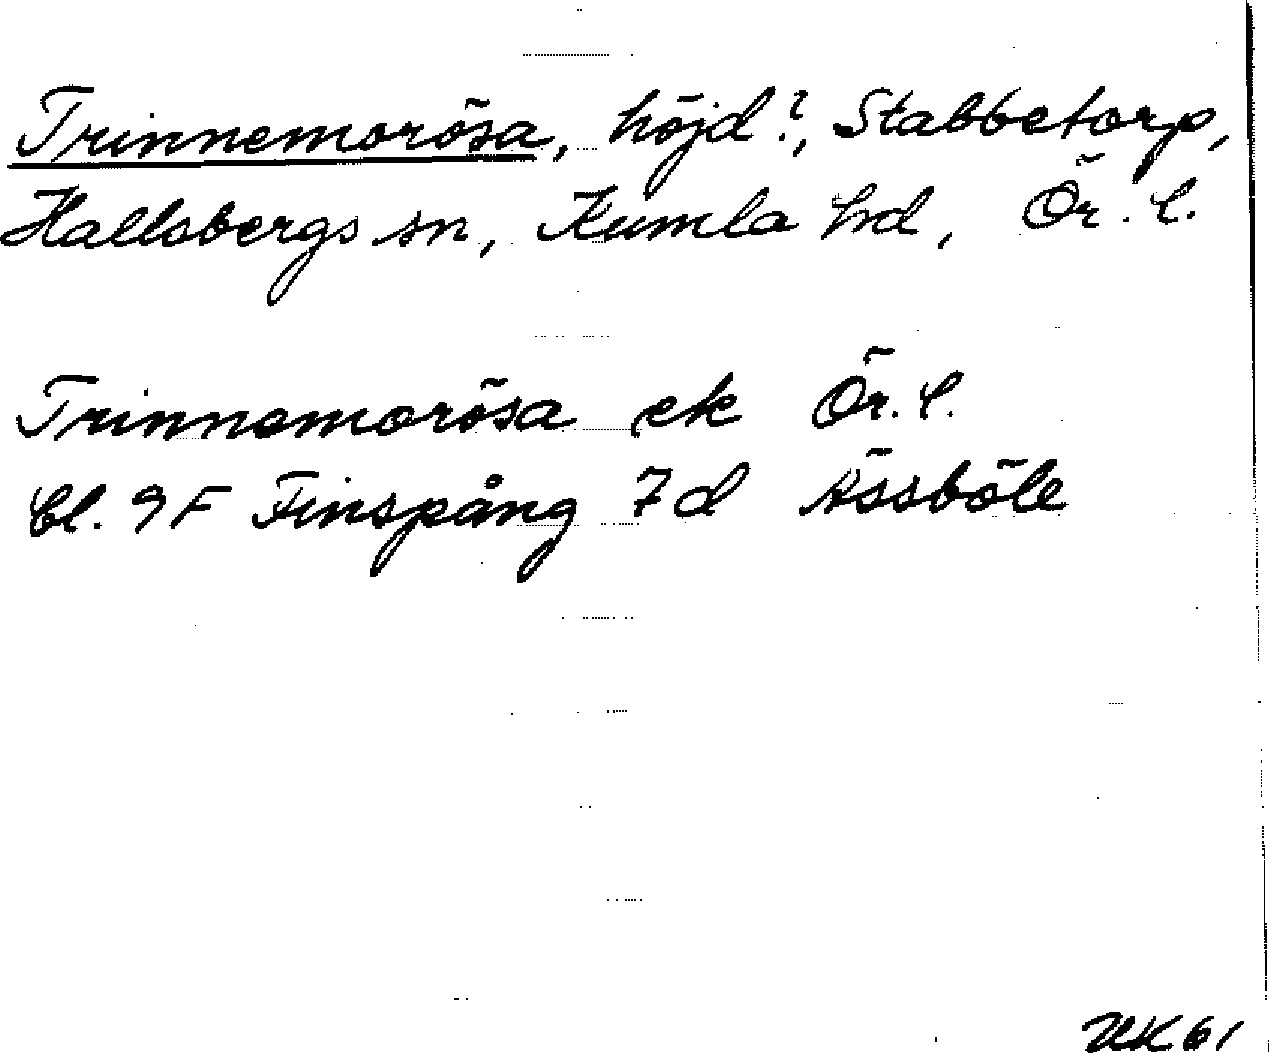 Trinnemorösa, höjd?, Stabbetorp,
Hallsbergs sn, Kumla hd, Ör. l.
Trinnemorösa ek Ör. l.
bl. 9F Finspång 7d Ässböle
UK61